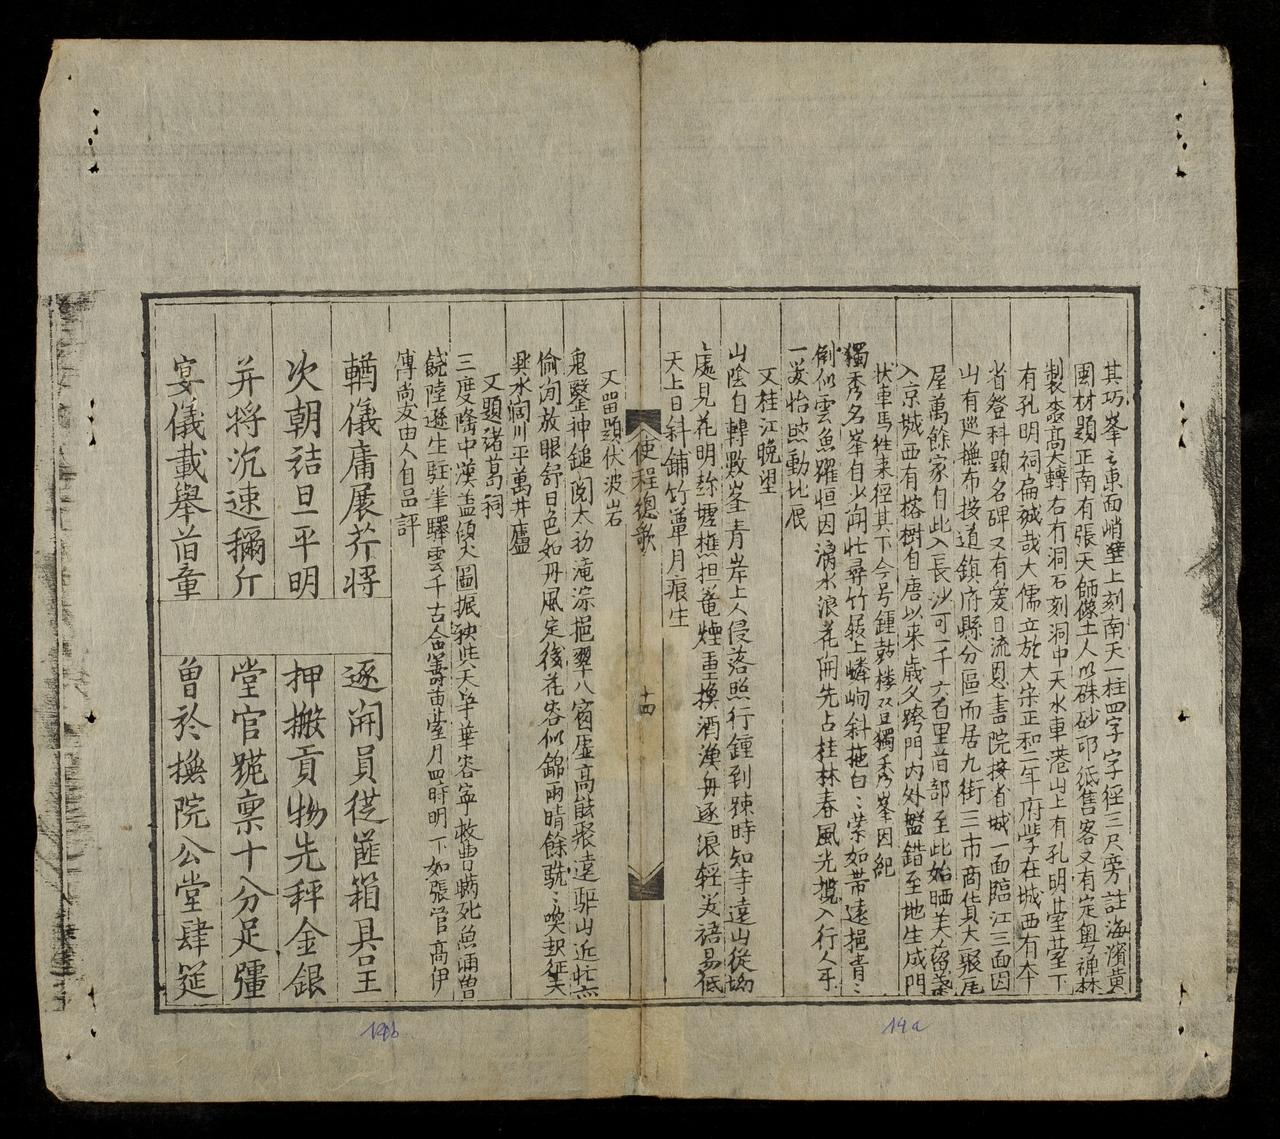 其巧峯之東面峭壁上刻南天一柱四字字径三尺旁註海濱黄
国材題正南有張天師像土人以硃砂印紙售客又有定粤禅林
製桼高大轉右有洞石刻洞中天水車港山上有孔明臺臺下
有孔明祠扁誠哉大儒立於大宋正和二年府学在城西有本
省登科題名碑又有宴日流恩書院接省城一面臨江三面因
山有巡撫布按道鎮府縣分區而居九街三市商貨大聚尾
屋萬餘家自此入長沙可一千六百里音部至此始晒
入京城西有榕樹自唐以来歳久跨門内外盤錯至地生成門
状車馬徃来径其下今号鍾鼓楼双旦獨秀峯因紀
獨秀名峯自少闻壮尋竹屐上嶙峋斜拖白〻業如帯遠挹青〻
倒似雲魚躍恒因漓水浪花開先占桂林春風光攬入行人手
一茇怡然動比辰
又桂江晚望
山陰自轉数峯青岸上人侵落照行鍾到踈時知寺遠山從坳
處見花明旅壚樵担奄煙重換酒漁舟逐浪軽羌語易低
天上日斜鋪竹簟月痕生
使程總歌
十四
又畱題伏波岩
鬼鑿神鎚闵太初淹淙挹翠八窗虚高能聚遠驱山近忙
偷闲放眼舒日色如丹風定後花容似錦雨晴餘䮚〻喚起征夫
興水闊川平萬井廬
又題诸葛祠
三度隆中漢盖傾大圖振秧共天争華容寧救曹瞞死魚浦曽
饒陸遜生駐筆驛雲千古合籌笛臺月四時明下如張管高伊
傅尚友由人自品評
輶儀庸展芥将
逐開員從䕃箱具呈
次朝詰旦平明
押搬貢物先秤金銀
并将沉速稱斤
堂官䟆稟十分足彊
宴儀載舉首章
曽於撫院公堂肆筵
19b
19a